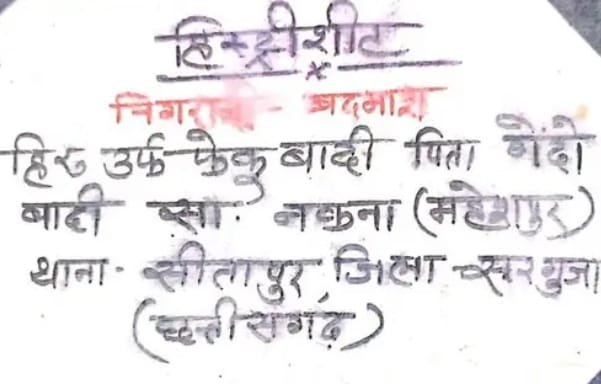 हिस्ट्रीशीट
निगरानी - बदमाश
हिरु उर्फ फेकु बादी पिता गेंदो
बादी सा. नकना (महेशपुर)
थाना. सीतापुर जिला सरगुजा
(छत्तीसगढ़)